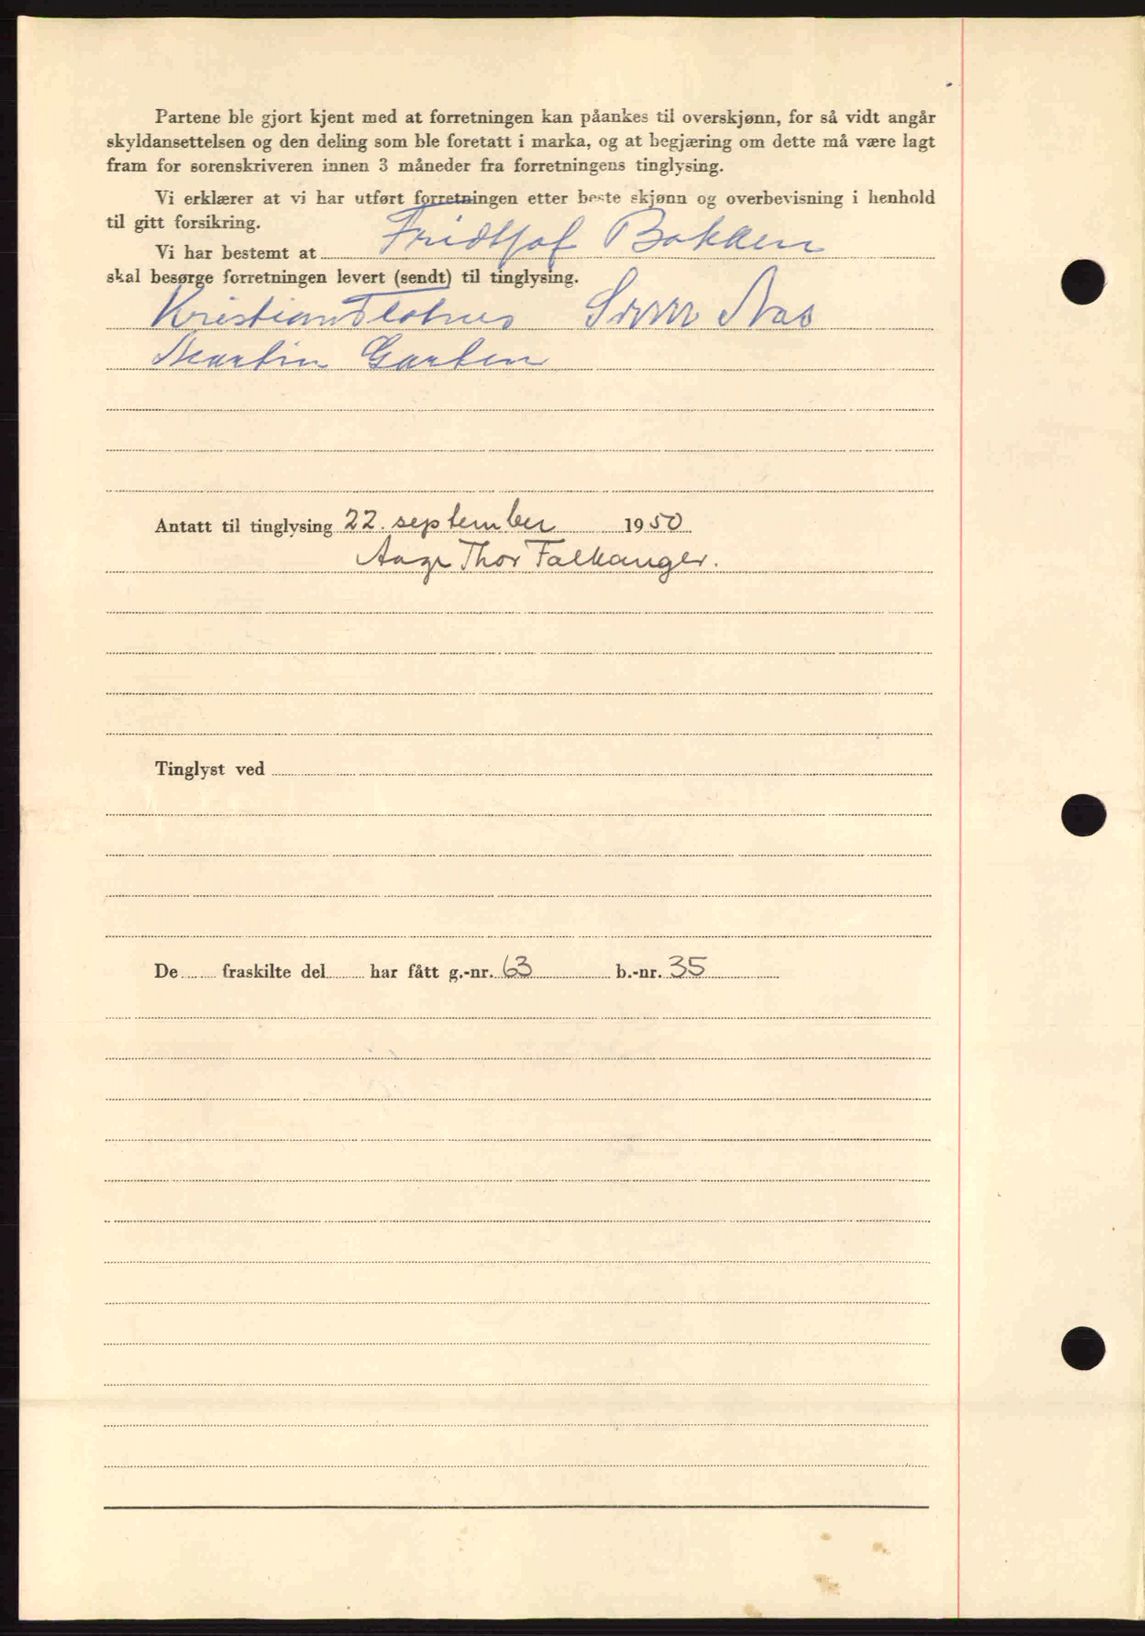 Partene ble gjort kjent med at forretningen kan påankes til overskjønn, for så vidt angår
skyldansettelsen og den deling som ble foretatt i marka, og at begjæring om dette må være lagt
fram for sorenskriveren innen 3 måneder fra forretningens tinglysing.
Vi erklærer at vi har utført forretningen etter beste skjønn og overbevisning i henhold
til gitt forsikring.
Vi har bestemt at Fridtjof Bakken
skal besørge forretningen levert (sendt) til tinglysing.
Kristian Aas
Martin Garten
Antatt til tinglysing 22. september 1950
Aage Thor Falkanger.
Tinglyst ved
De fraskilte del har fått g.-nr. 63 b.-nr. 35